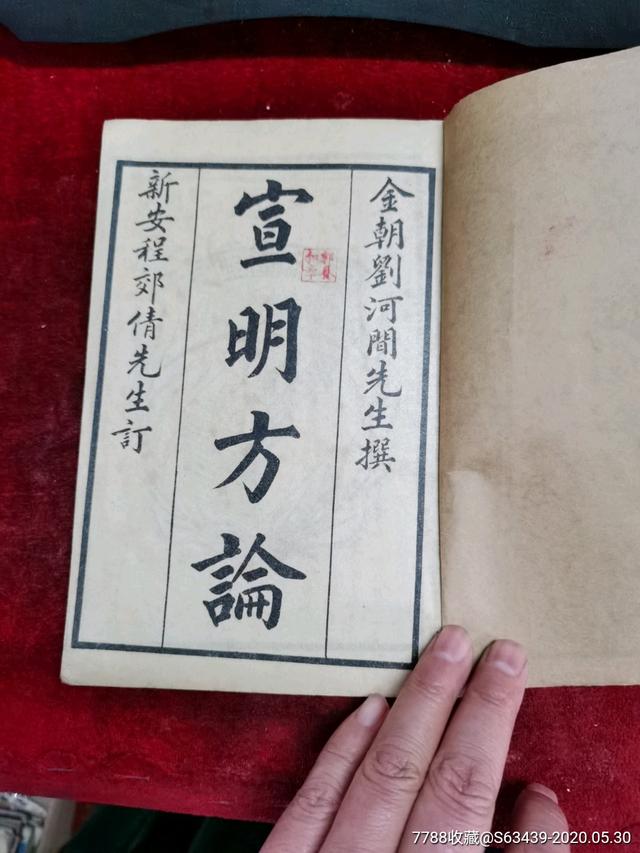 金朝劉河間先生撰
宣明方論
新安程郊倩先生訂
7788收藏@S63439-2020.05.30